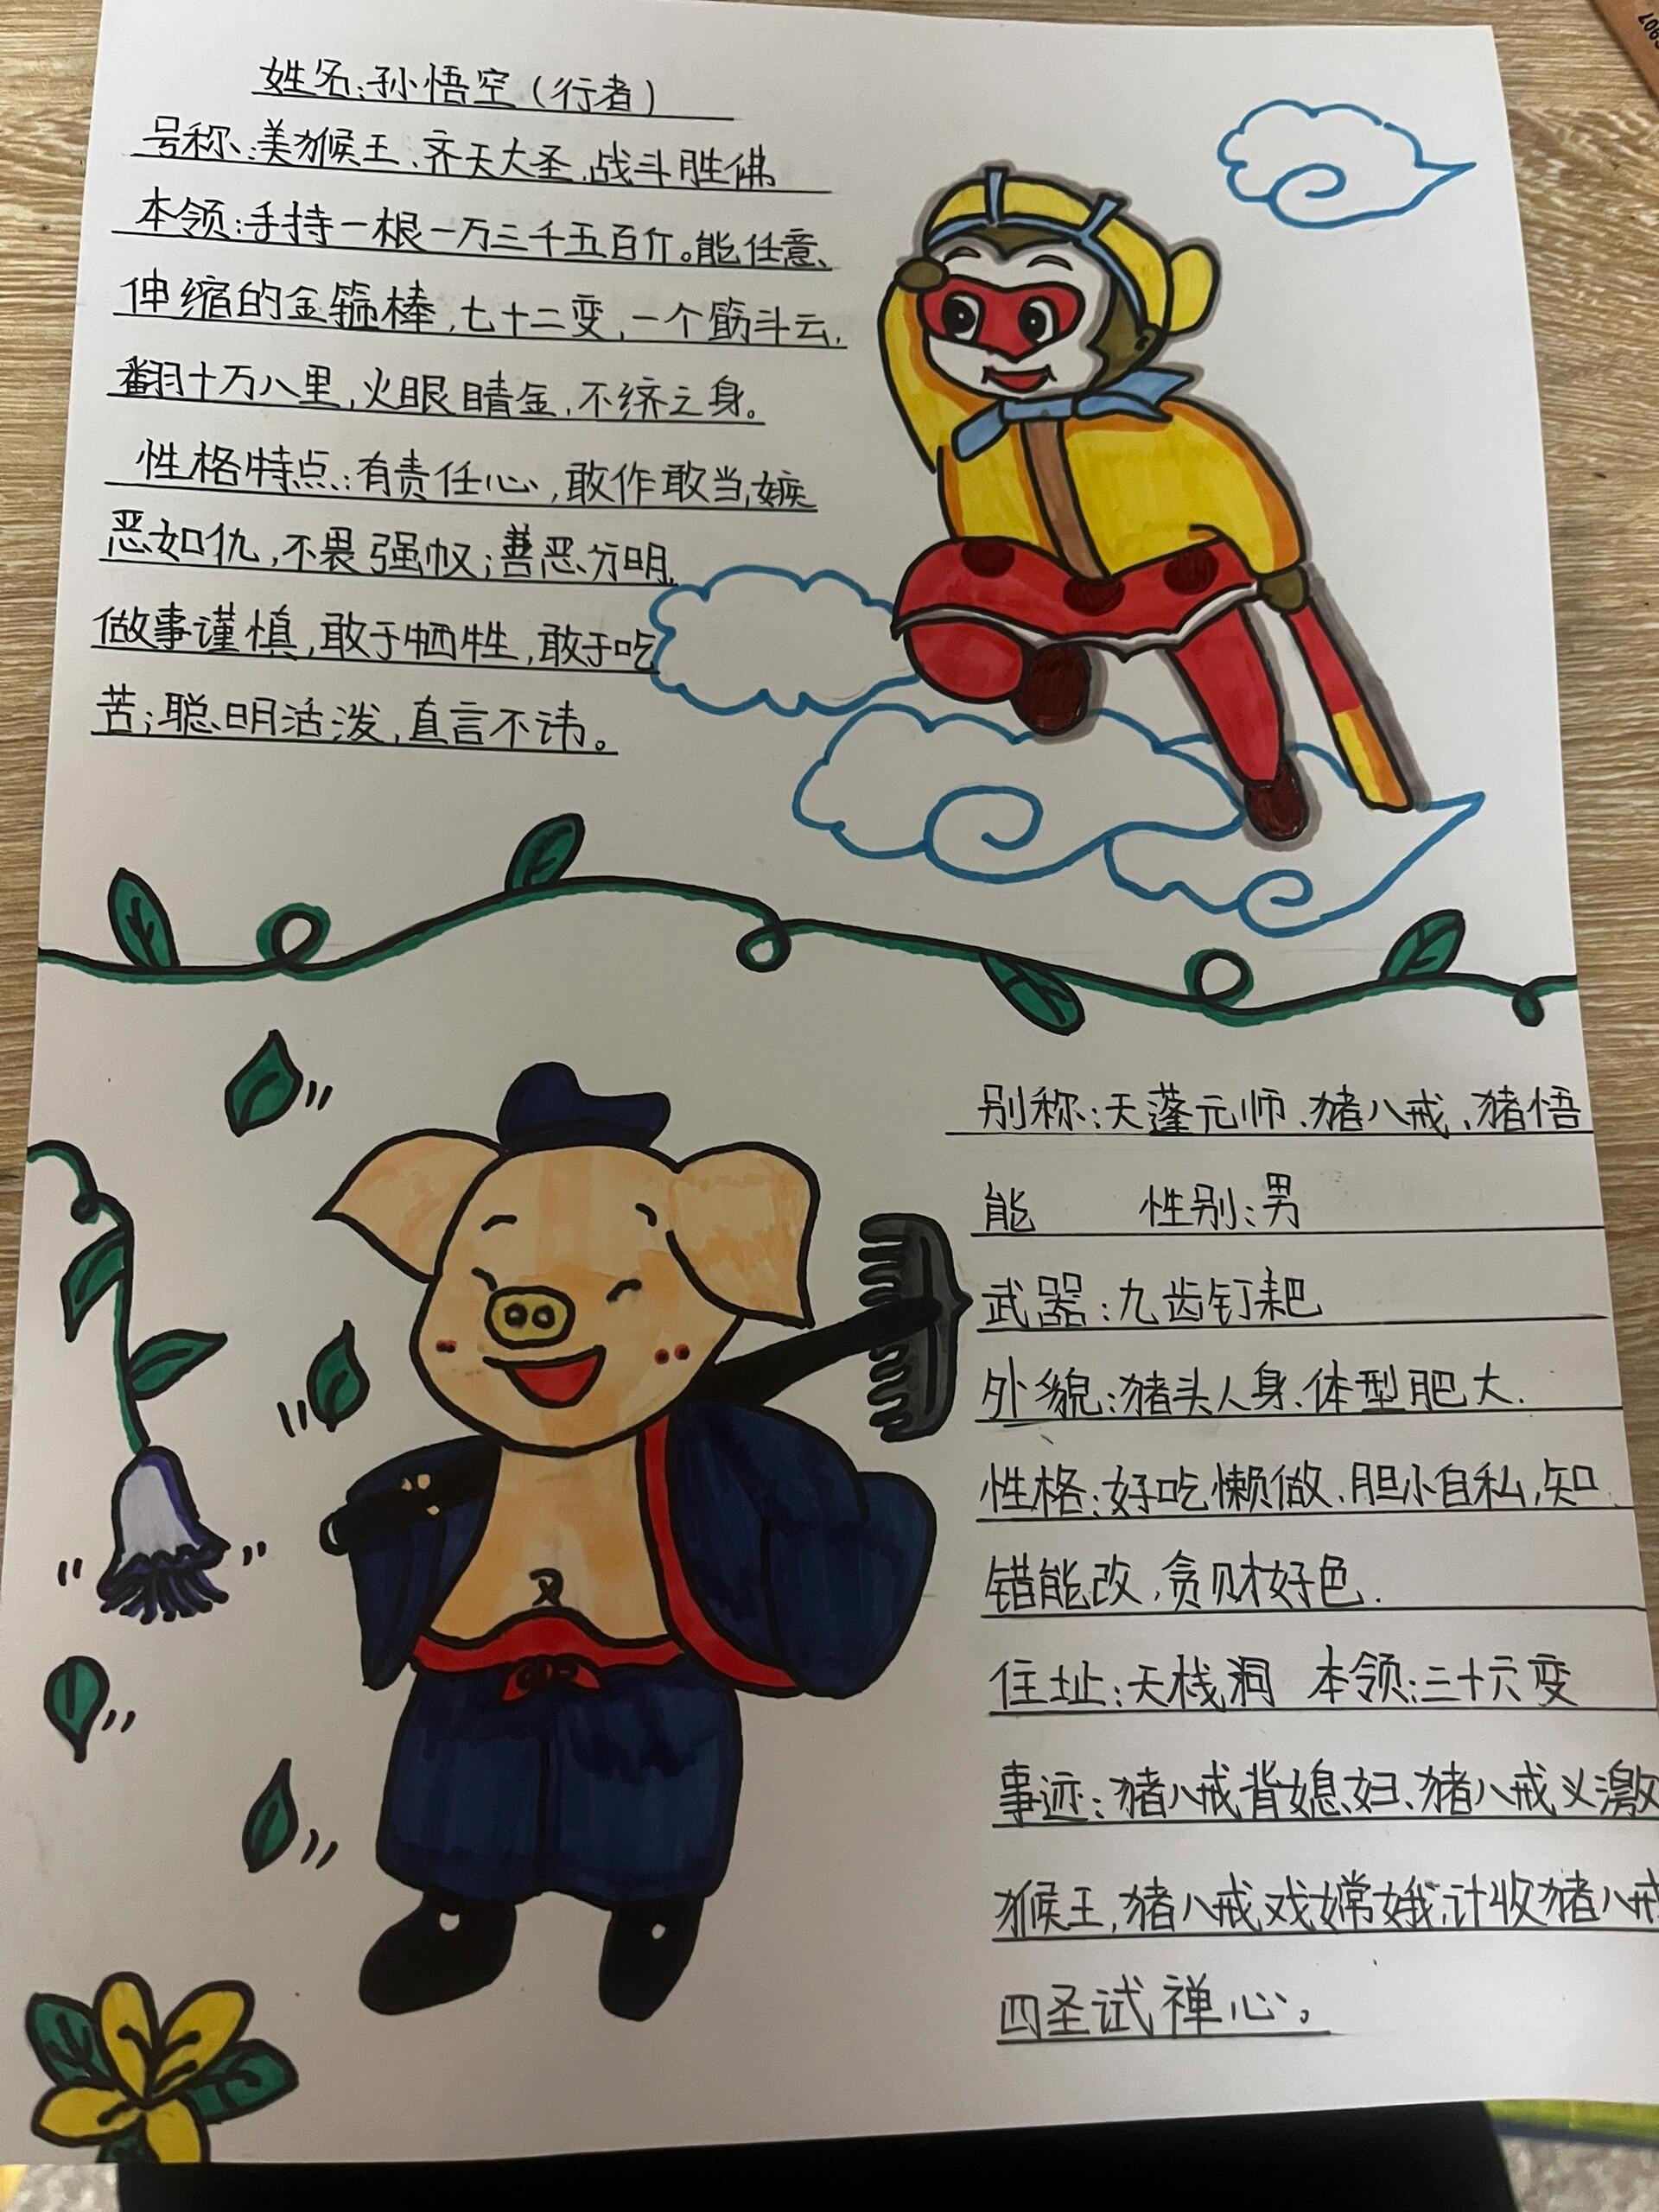 姓名:孙悟空(行者)
号称:美猴王、齐天大圣,战斗胜佛
本领:手持一根一万三千五百斤。能任意、
伸缩的金箍棒,七十二变,一个筋斗云,
翻十万八里,火眼睛金,不坏之身。
性格特点:有责任心,敢作敢当,嫉
恶如仇,不畏强权;善恶分明,
做事谨慎,敢于牺牲,敢于吃
苦;聪明活泼,直言不讳。
别称:天蓬元师、猪八戒、猪悟
能 性别:男
武器:九齿钉耙
外貌:猪头人身、体型肥大.
性格:好吃懒做、胆小自私,知
错能改,贪财好色.
住址:天栈洞 本领:三十六变
事迹:猪八戒背媳妇、猪八戒义激
猴王,猪八戒戏嫦娥,计收猪八戒
四圣试禅心,